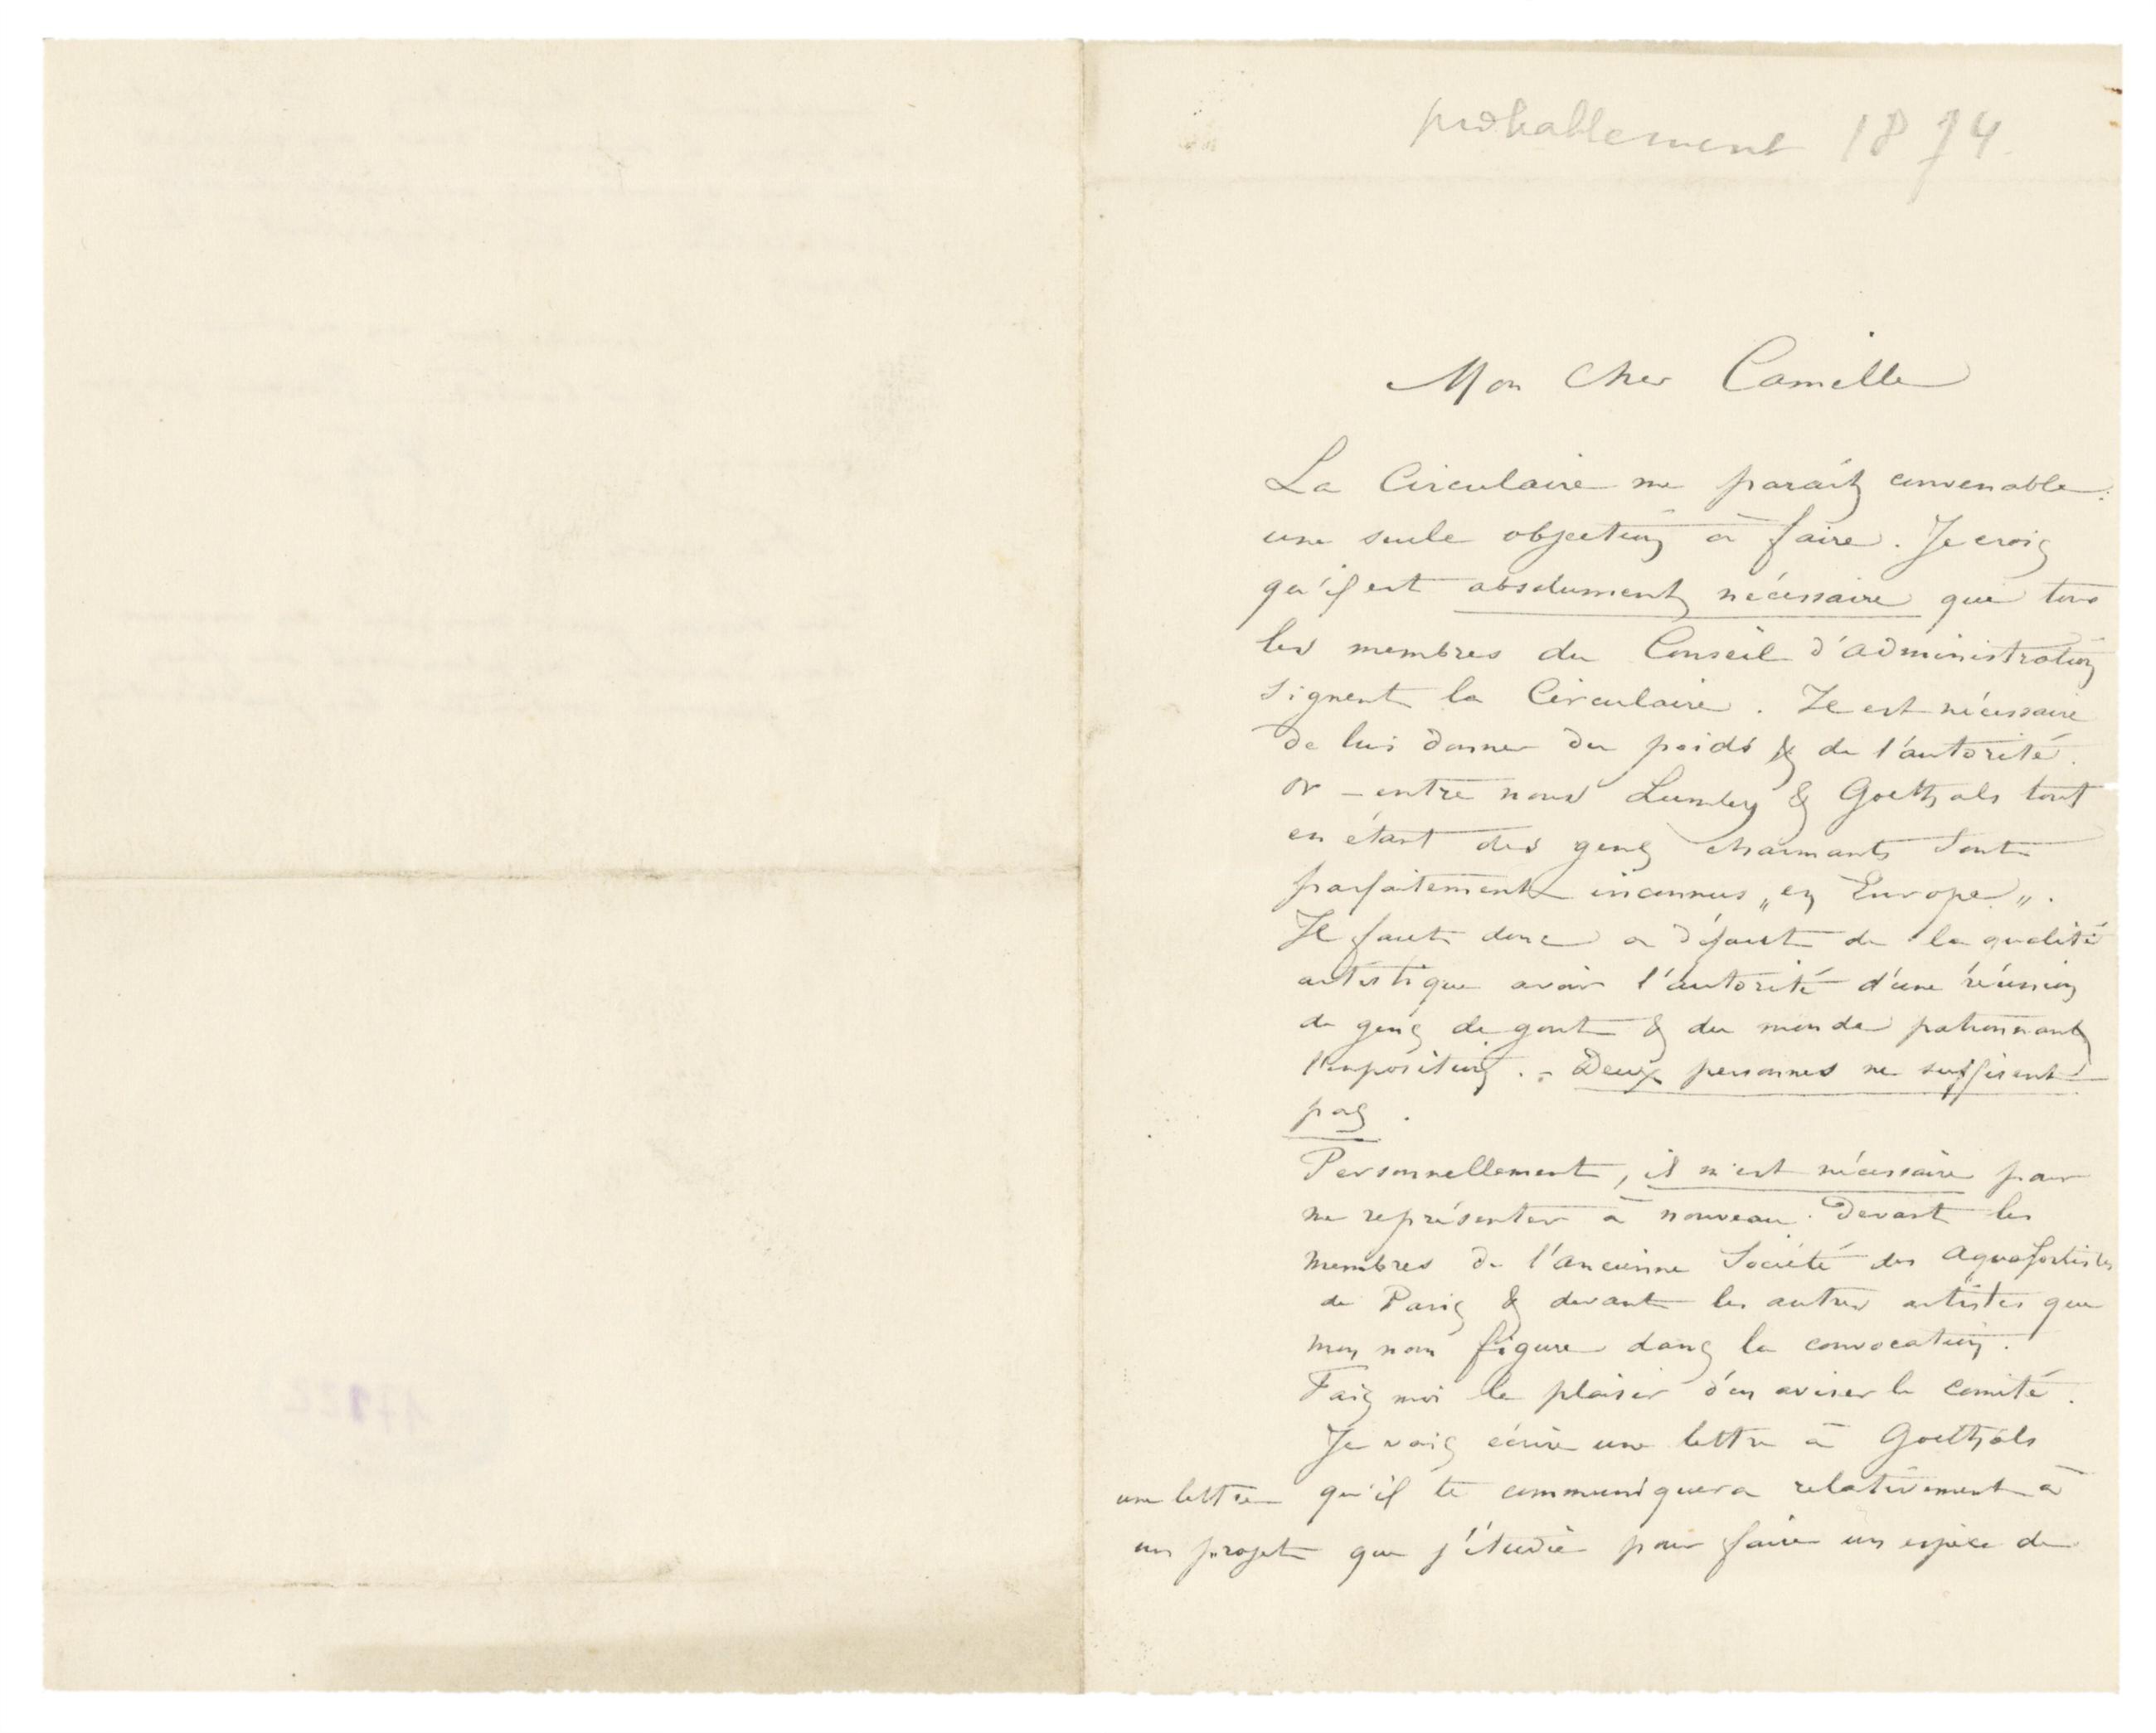 probablement 1874
Mon Cher Camille
La Circulaire me parait convenable.
une seule objection à faire. Je crois
qu'il est absolument nécessaire que tous
les membres du Conseil d'administration
signent la Circulaire. Il est nécessaire
de lui donner du poids & de l'autorité.
or – entre nous Lumley & Goethals tout
en étant des gens charmants sont
parfaitement inconnus „en Europe„.
Il faut donc a défaut de la qualité
artistique avoir l'autorité d'une réunion
de gens de gout & du monde patronnant
l'exposition. – Deux personnes ne suffisent
pas.
Personnellement, il m'est nécessaire pour
me représenter à nouveau devant les
membres de l'ancienne Société des Aquafortistes
de Paris & devant les autres artistes que
mon nom figure dans la convocation.
Fais moi le plaisir d'en aviser le comité.
Je vais écrire une lettre à Goethals
une lettre qu'il te communiquera relativement à
un projet que j'étudie pour faire un espèce de